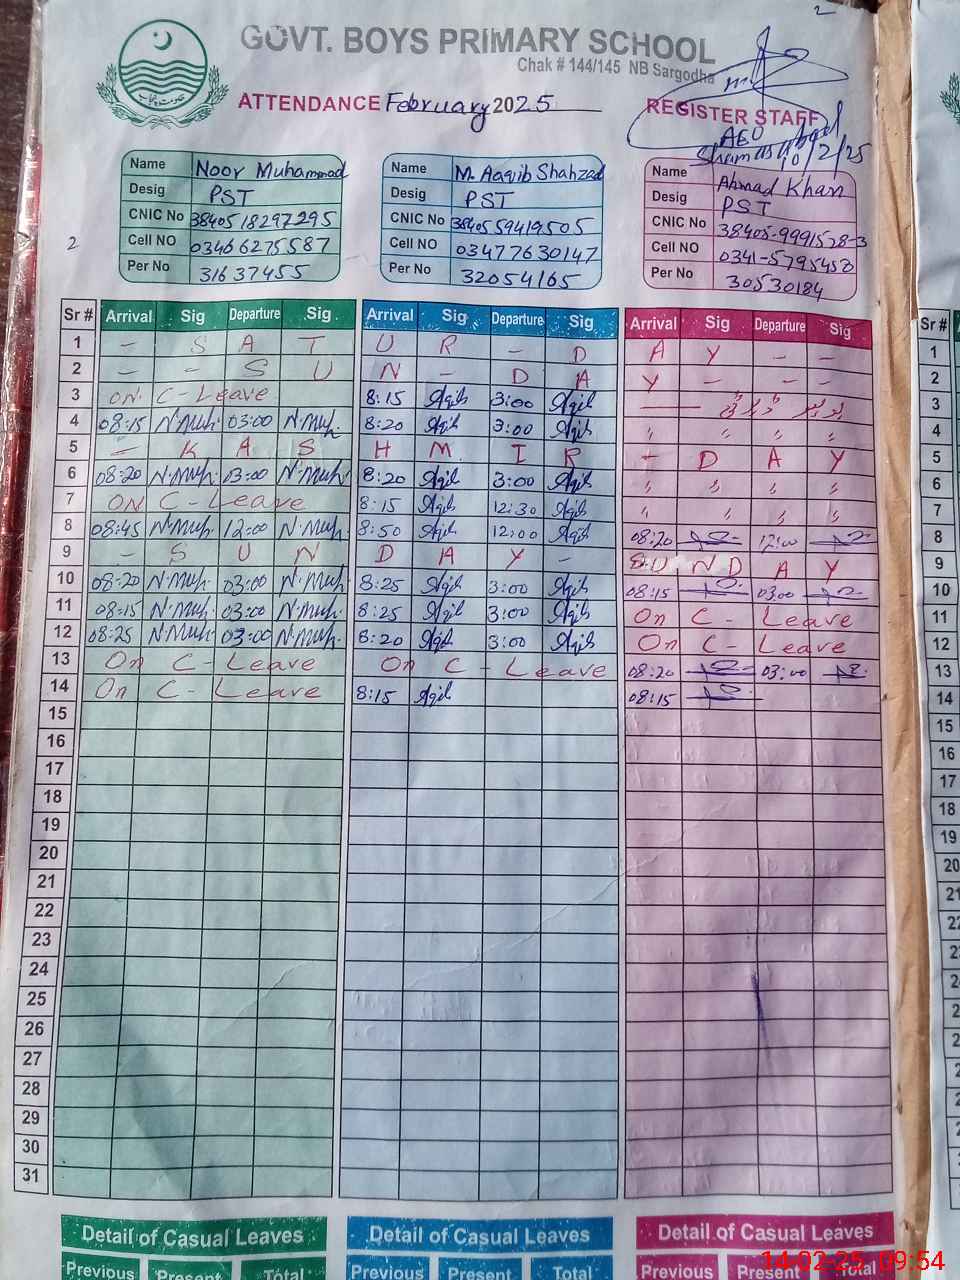 2
GOVT. BOYS PRIMARY SCHOOL
Chak # 144/145 NB Sargodha
ATTENDANCE February 2025 REGISTER STAFF
AEO
10/2/25
Name Noor Muhammad
Desig PST
CNIC No 3840518297295
Cell NO 03466275587
Per No 31637455
Name M. Aaqib Shahzad
Desig PST
CNIC No 3840559419505
Cell NO 03477630147
Per No 32054165
Name Ahmad Khan
Desig PST
CNIC No 38405-9991528-3
Cell NO 0341-5795458
Per No 30530184
2
Sr # Arrival Sig Departure Sig Arrival Sig Departure Sig Arrival Sig Departure Sig Sr #
1 - S A T U R - D A Y - - 1
2 - - S U N - D A Y - - - 2
3 On C-Leave 8:15 Aqib 3:00 Aqib 3
4 08:15 N.Muh. 03:00 N.Muh. 8:20 Aqib 3:00 Aqib 〃 〃 〃 〃 4
5 - K A S H M I R - D A Y 5
6 08:20 N.Muh. 03:00 N.Muh. 8:20 Aqib 3:00 Aqib 〃 〃 〃 〃 6
7 ON C-Leave 8:15 Aqib 12:30 Aqib 〃 〃 〃 〃 7
8 08:45 N.Muh. 12:00 N.Muh. 8:50 Aqib 12:00 Aqib 08:20 12:00 8
9 - S U N D A Y - SU N D A Y 9
10 08:20 N.Muh. 03:00 N.Muh. 8:25 Aqib 3:00 Aqib 08:15 03:00 10
11 08:15 N.Muh. 03:00 N.Muh. 8:25 Aqib 3:00 Aqib On C- Leave 11
12 08:25 N.Muh. 03:00 N.Muh. 8:20 Aqib 3:00 Aqib On C- Leave 12
13 On C- Leave On C - Leave 08:20 03:00 13
14 On C- Leave 8:15 Aqib 08:15 14
15 15
16 16
17 17
18 18
19 19
20 20
21 21
22
23
24
25
26
27
28
29
30
31
Detail of Casual Leaves Detail of Casual Leaves Detail of Casual Leaves
Previous Present Total Previous Present Total Previous Present Total
14-02-25 09:54